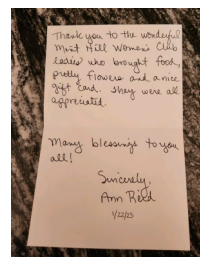 Thank you to the wonderful
Mint Hill Women's Club
ladies who brought food,
pretty flowers and a nice
gift card. They were all
appreciated.
Many blessings to you
all!
Sincerely,
Ann Reid
1/22/23